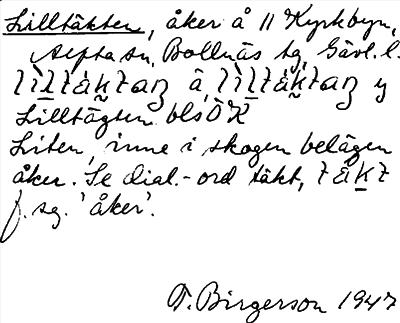 Lilltäkten, åker å 11 Kyrkbyn,
Alfta sn, Bollnäs tg, Gävl. l.
lìltáktaŋ ä, lìltäktaŋ y
Lilltägten blsÖK
Liten, inne i skogen belägen
åker. Se dial.-ord täkt, täkt
f. sg. 'åker'.
T. Birgerson 1947